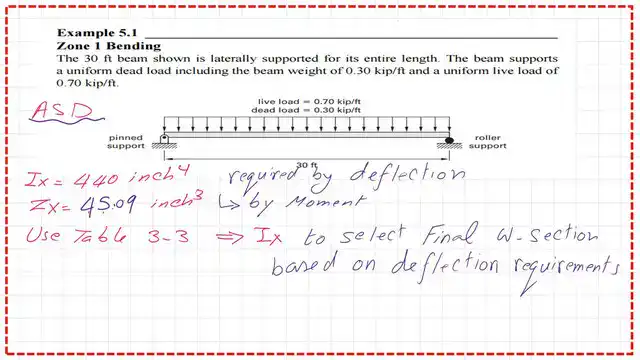 Example 5.1
Zone 1 Bending
The 30 ft beam shown is laterally supported for its entire length. The beam supports
a uniform dead load including the beam weight of 0.30 kip/ft and a uniform live load of
0.70 kip/ft.
ASD
live load = 0.70 kip/ft
dead load = 0.30 kip/ft
pinned
support
roller
support
30 ft
Ix = 440 inch⁴ required by deflection
Zx = 45.09 inch³ ↳ by Moment
Use Table 3-3 ⇒ Ix to select Final W-Section
based on deflection requirements